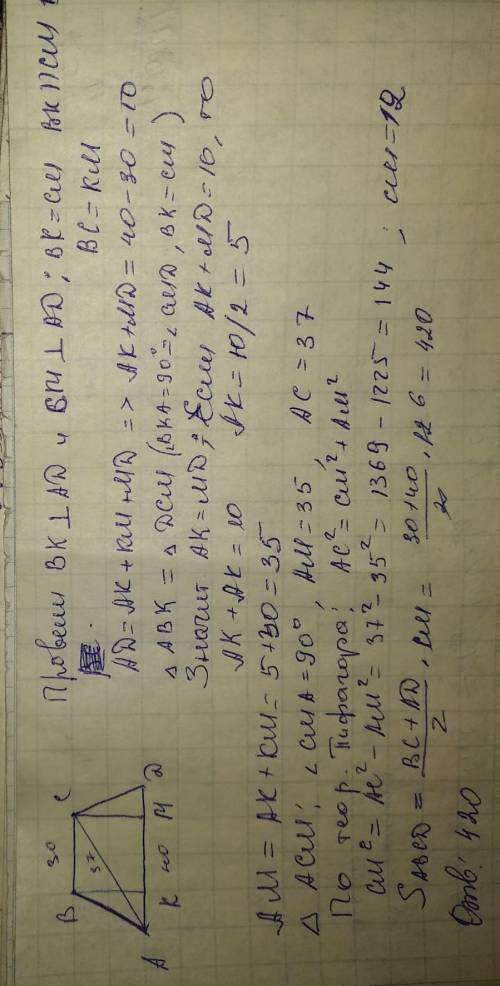 Провели BK ⊥ AD и ВМ ⊥ AD; BK = CM BK ∥ CM
BC = KM
AD = AK + KM + MD => AK + MD = 40 - 30 = 10
△ ABK = △ DCM (∠BKA = 90° = ∠CMD, BK = CM)
Значит AK = MD; Если AK + MD = 10, то
AK + AK = 10 AK = 10/2 = 5
AM = AK + KM = 5 + 30 = 35
△ ACM: ∠CMA = 90°, AM = 35, AC = 37
По теор. Пифагора: AC² = CM² + AM²
CM² = AC² - AM² = 37² - 35² = 1369 - 1225 = 144; CM = 12
S ABCD = (BC + AD)/2 · CM = (30 + 40)/2 · 12 6 = 420
Отв: 420
B 30 C
37
A K 40 M D